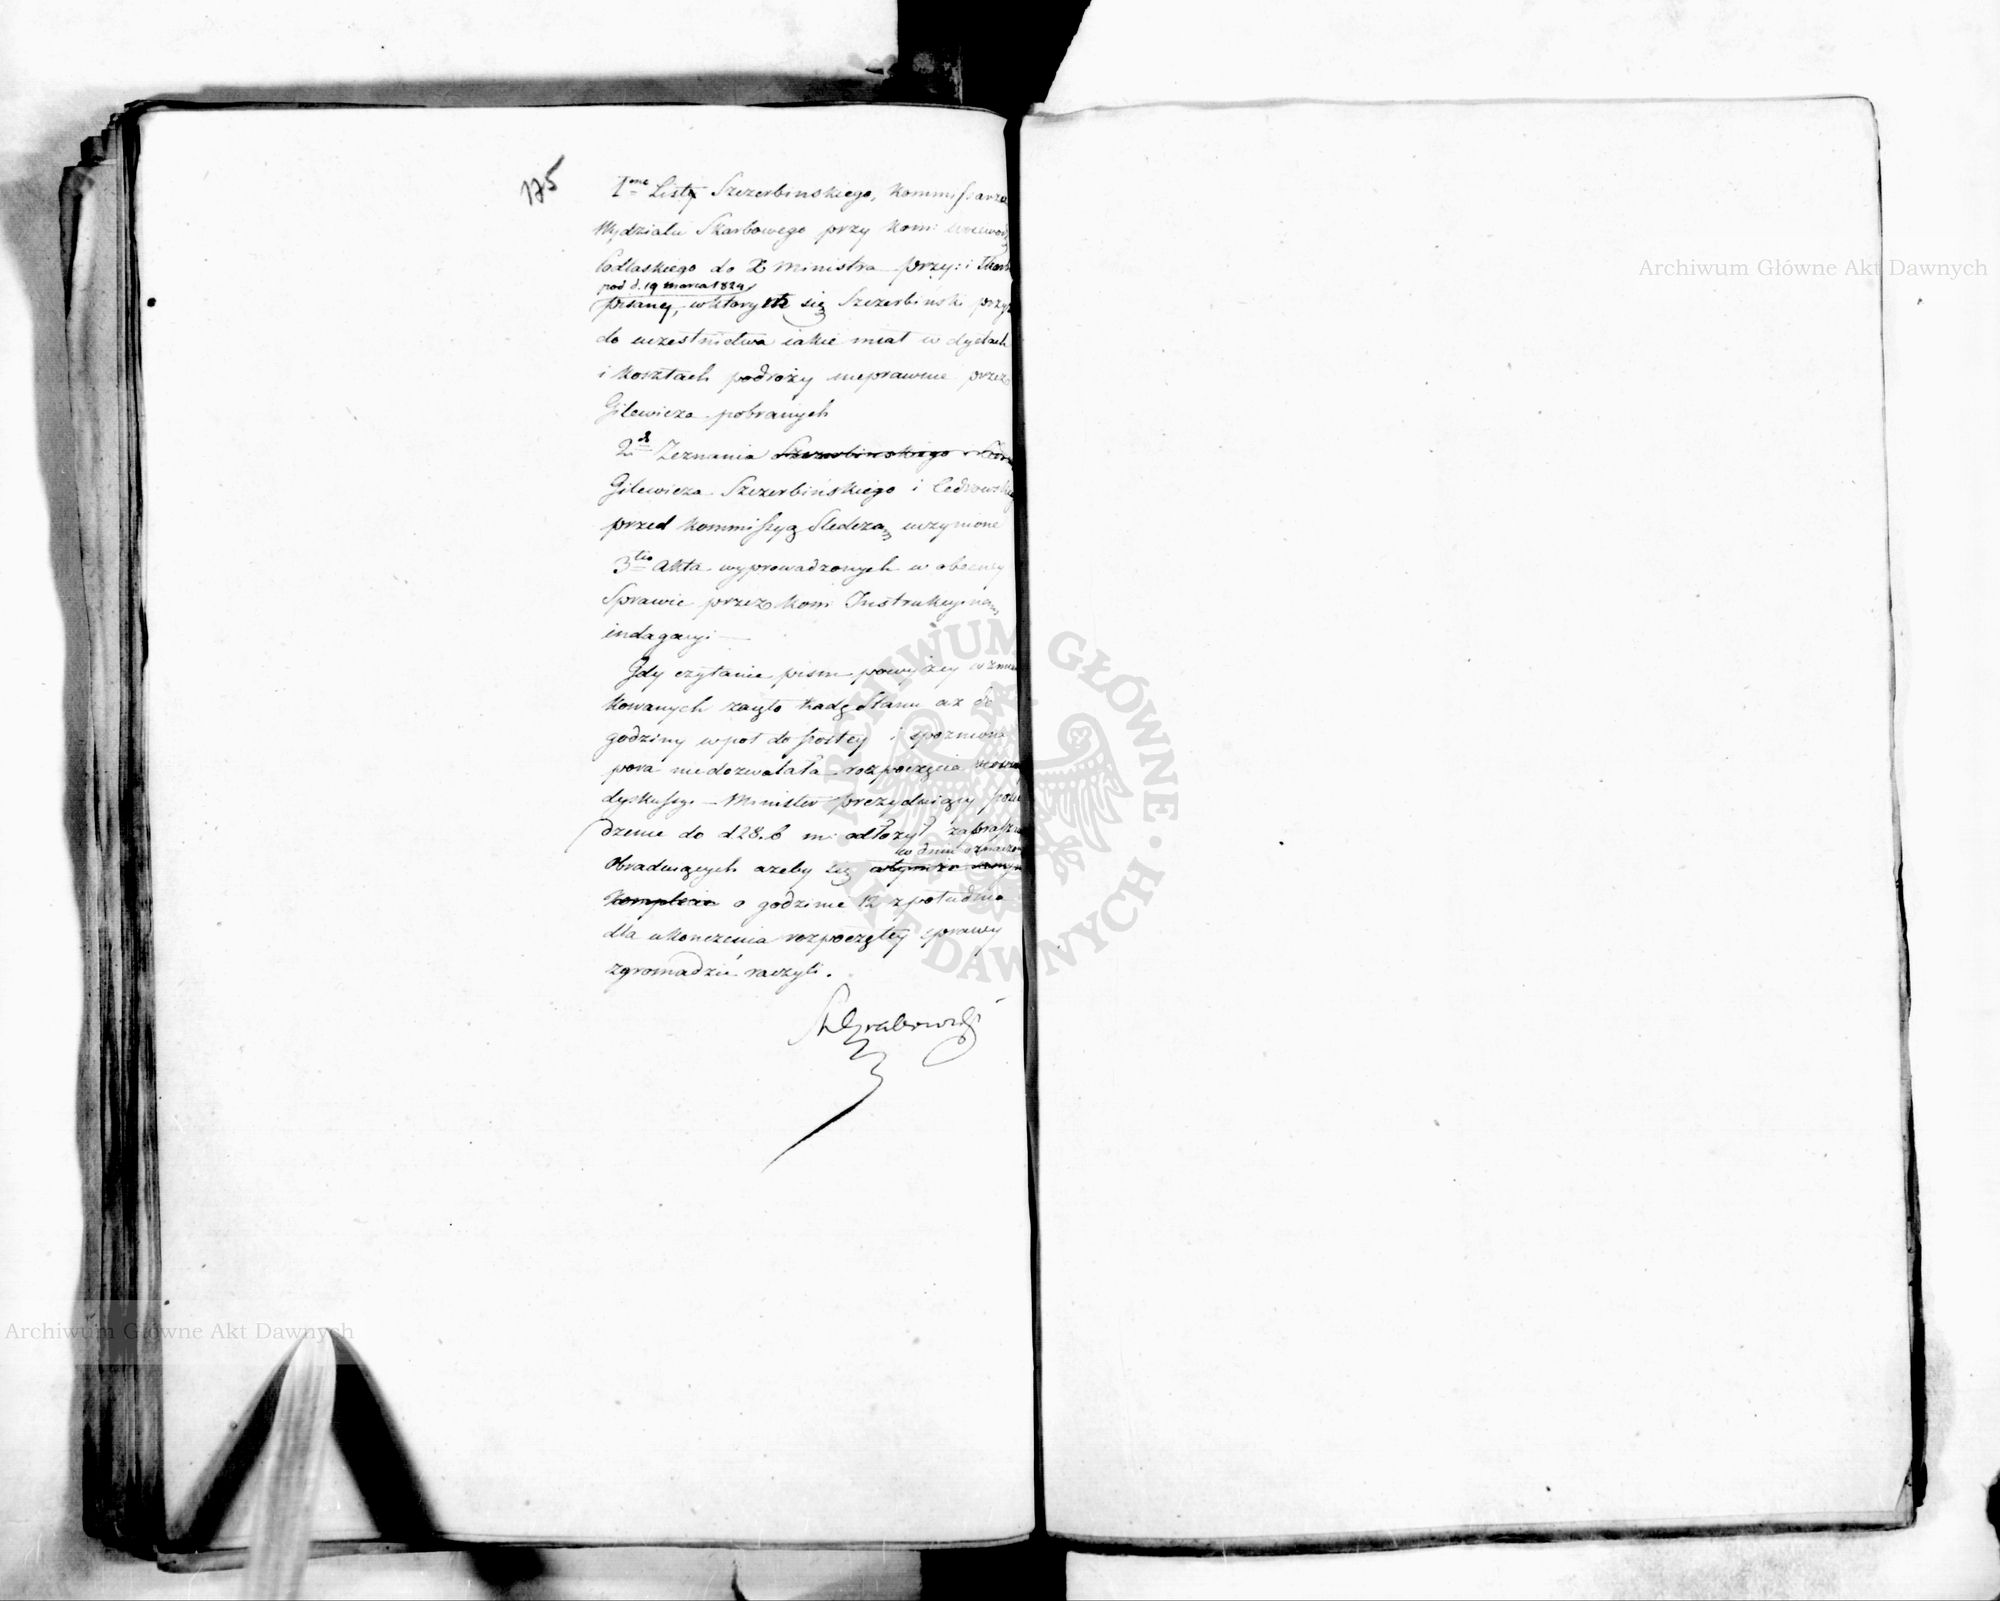 175
1mo Listy Szczerbinskiego, Kommissarza
Wydziału Skarbowego przy Kom: Woiewodz
Podlaskiego do X Ministra przy: i Skarb
pod d. 19 marca 1824
pisany, w którym się Szczerbinski przyz
do uczestnictwa iakie miał w dyetach
i kosztach podroży nieprawnie przez
Gilewicza pobranych
2do Zeznania Szczerbinskiego i Cedro
Gilewicza Szczerbińskiego i Cedrowskieg
przed Kommissyą Sledczą uczynione
3tio Akta wyprowadzonych w obecney
Sprawie przez Kom Instrukcyiną
indagacyi —
Gdy czytanie pism powyżey wzmian
kowanych zaięło Radę Stanu aż do
godziny wpoł do szostey i spozniona
pora niedozwalała rozpoczęcia
dyskussyi — Minister prezyduiący posie
dzenie do d 28. b m: odłożył zaprasza
w dniu oznaczo
Obraduiących ażeby się
komplecie o godzinie 12 z południa
dla ukończenia rozpoczętey sprawy
zgromadzić raczyli.
St Grabowski
Archiwum Główne Akt Dawnych
Archiwum Główne Akt Dawnych
ARCHIWUM GŁÓWNE · AKT DAWNYCH ·